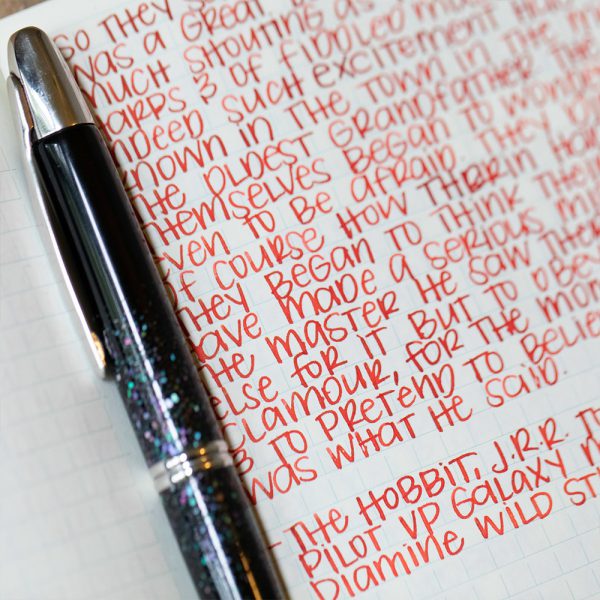 SO THEY
WAS A GREAT
MUCH SHOUTING AS
HARPS & OF FIDDLED
INDEED SUCH EXCITEMENT
KNOWN IN THE TOWN IN THE
THE OLDEST GRANDFATHER THE
THEMSELVES BEGAN TO WONDER
EVEN TO BE AFRAID. THEY
OF COURSE HOW THORIN
THEY BEGAN TO THINK
HAVE MADE A SERIOUS
THE MASTER HE SAW
ELSE FOR IT BUT TO OBEY
CLAMOUR, FOR THE
& TO PRETEND TO
WAS WHAT HE SAID.
-THE HOBBIT, J.R.R.
PILOT VP GALAXY
DIAMINE WILD